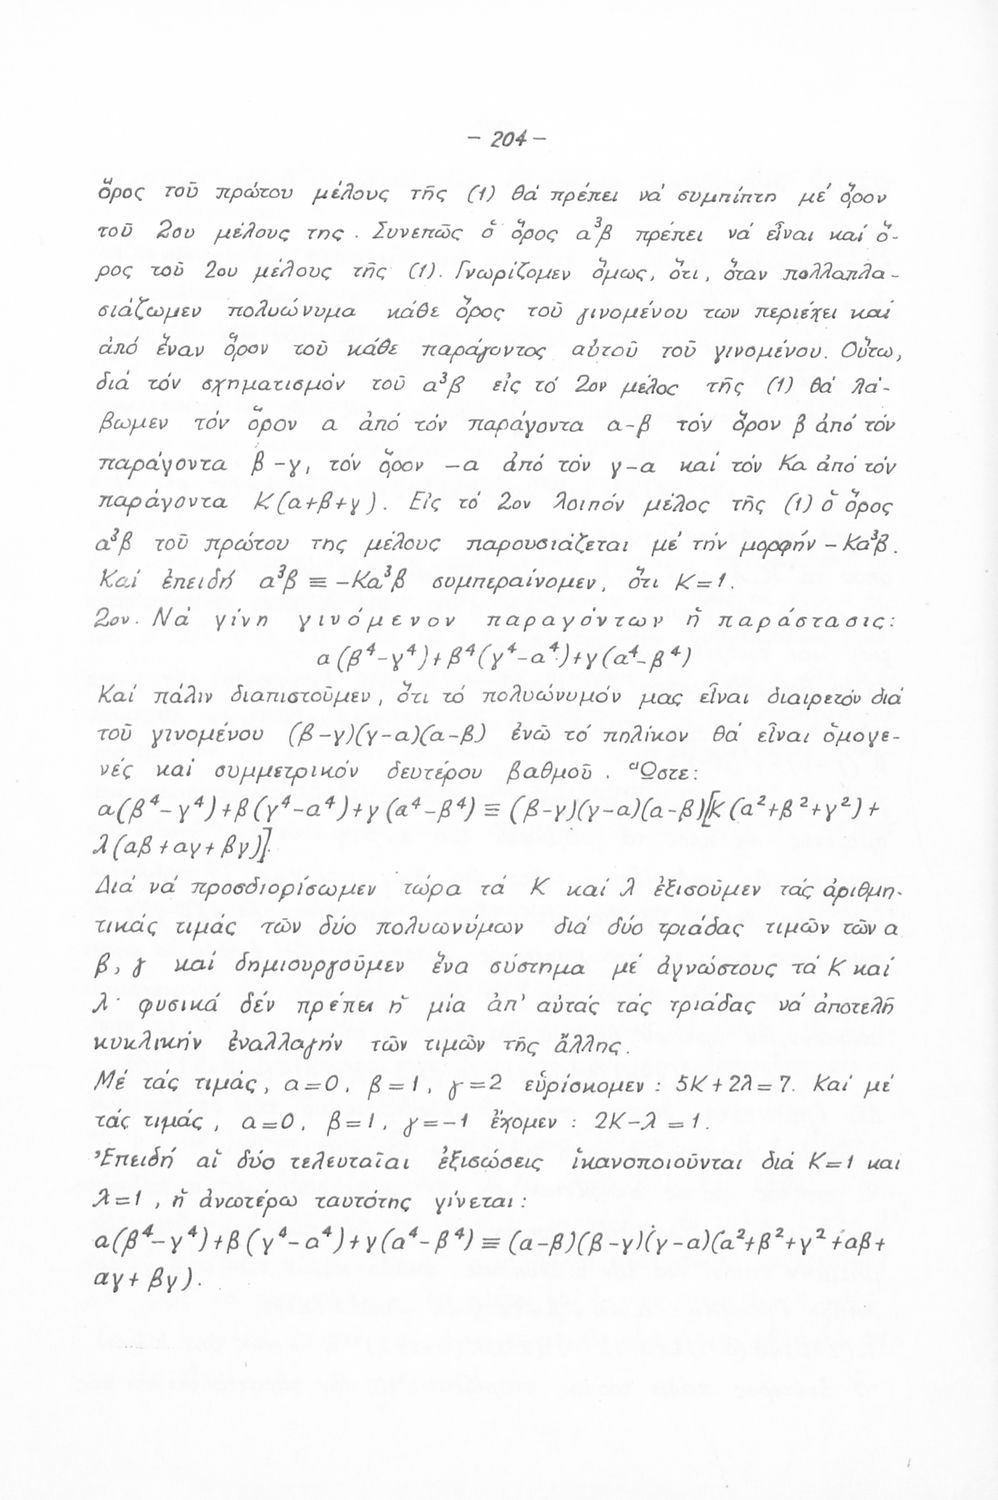 - 204 -
ὅρος τοῦ πρώτου μέλους τῆς (1) θά πρέπει νά συμπίπτη μέ ὅρον
τοῦ 2ου μέλους της . Συνεπῶς ὁ ὅρος α³β πρέπει νά εἶναι καί ὅ-
ρος τοῦ 2ου μέλους τῆς (1). Γνωρίζομεν ὅμως, ὅτι, ὅταν πολλαπλα-
σιάζωμεν πολυώνυμα κάθε ὅρος τοῦ γινομένου των περιέχει καί
ἀπό ἕναν ὅρον τοῦ κάθε παράγοντος αὐτοῦ τοῦ γινομένου. Οὕτω,
διά τόν σχηματισμόν τοῦ α³β εἰς τό 2ον μέλος τῆς (1) θά λά-
βωμεν τόν ὅρον α ἀπό τόν παράγοντα α-β τόν ὅρον β ἀπό τόν
παράγοντα β-γ, τόν ὅρον -α ἀπό τόν γ-α καί τόν Κα ἀπό τόν
παράγοντα Κ(α+β+γ). Εἰς τό 2ον λοιπόν μέλος τῆς (1) ὁ ὅρος
α³β τοῦ πρώτου της μέλους παρουσιάζεται μέ τήν μορφήν -Κα³β.
Καί ἐπειδή α³β ≡ -Κα³β συμπεραίνομεν, ὅτι Κ=1.
2ον. Νά γίνη γινόμενον παραγόντων ἡ παράστασις:
α(β⁴-γ⁴)+β⁴(γ⁴-α⁴)+γ(α⁴-β⁴)
Καί πάλιν διαπιστοῦμεν, ὅτι τό πολυώνυμόν μας εἶναι διαιρετόν διά
τοῦ γινομένου (β-γ)(γ-α)(α-β) ἐνῶ τό πηλίκον θά εἶναι ὁμογε-
νές καί συμμετρικόν δευτέρου βαθμοῦ . Ὥστε:
α(β⁴-γ⁴)+β(γ⁴-α⁴)+γ(α⁴-β⁴) ≡ (β-γ)(γ-α)(α-β)[k(α²+β²+γ²)+
λ(αβ+αγ+βγ)].
Διά νά προσδιορίσωμεν τώρα τά Κ καί λ ἐξισοῦμεν τάς ἀριθμη-
τικάς τιμάς τῶν δύο πολυωνύμων διά δύο τριάδας τιμῶν τῶν α
β, γ καί δημιουργοῦμεν ἕνα σύστημα μέ ἀγνώστους τά Κ καί
λ· φυσικά δέν πρέπει ἡ μία ἀπ' αὐτάς τάς τριάδας νά ἀποτελῆ
κυκλικήν ἐναλλαγήν τῶν τιμῶν τῆς ἄλλης.
Μέ τάς τιμάς, α=0, β=1, γ=2 εὑρίσκομεν : 5Κ+2λ=7. Καί μέ
τάς τιμάς, α=0, β=1, γ=-1 ἔχομεν : 2Κ-λ =1.
Ἐπειδή αἱ δύο τελευταῖαι ἐξισώσεις ἱκανοποιοῦνται διά Κ=1 και
λ=1, ἡ ἀνωτέρω ταυτότης γίνεται:
α(β⁴-γ⁴)+β(γ⁴-α⁴)+γ(α⁴-β⁴) ≡ (α-β)(β-γ)(γ-α)(α²+β²+γ²+αβ+
αγ+βγ).